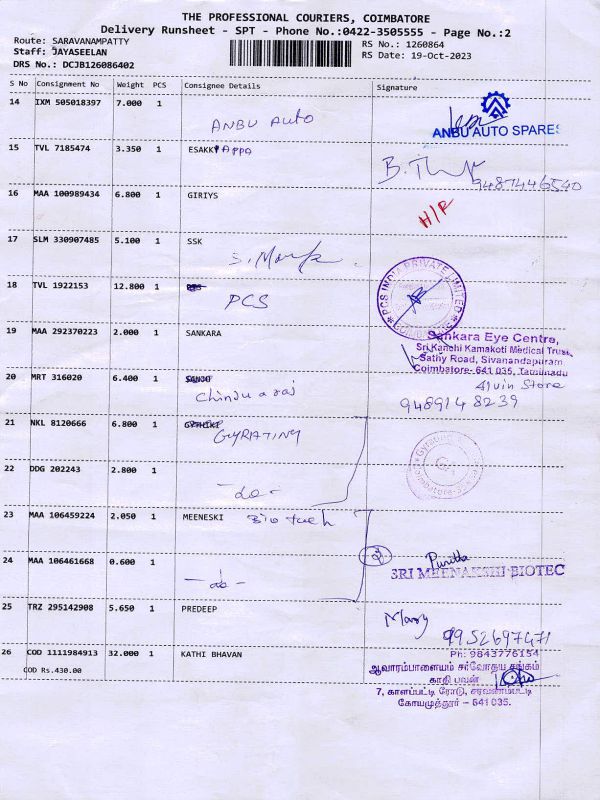 THE PROFESSIONAL COURIERS, COIMBATORE
Delivery Runsheet - SPT - Phone No.:0422-3505555 - Page No.:2
Route: SARAVANAMPATTY
Staff: JAYASEELAN
DRS No.: DCJB126086402
RS No.: 1260864
RS Date: 19-Oct-2023
S No Consignment No Weight PCS Consignee Details Signature
14 IXM 505018397 7.000 1
ANBU Auto
ANBU AUTO SPARES
15 TVL 7185474 3.350 1 ESAKKIAPPA
9487446540
16 MAA 100989434 6.800 1 GIRIYS
H/R
17 SLM 330907485 5.100 1 SSK
18 TVL 1922153 12.800 1
PCS
PCS INDIA PRIVATE LIMITED
19 MAA 292370223 2.000 1 SANKARA
Sankara Eye Centre,
Sri Kanchi Kamakoti Medical Trust,
Sathy Road, Sivanandapuram
Coimbatore- 641 035, Tamilnadu
20 MRT 316020 6.400 1
Store
9489148239
21 NKL 8120666 6.800 1
GYRATINY
22 DDG 202243 2.800 1
-do-
23 MAA 106459224 2.050 1 MEENESKI Bio tech
24 MAA 106461668 0.600 1
-do-
SRI MEENAKSHI BIOTEC
25 TRZ 295142908 5.650 1 PREDEEP
Mary
9952697471
26 COD 1111984913 32.000 1 KATHI BHAVAN
COD Rs.430.00
Ph: 9843776154
ஆவாரம்பாளையம் சர்வோதய சங்கம்
காதி பவன்
7, காளப்பட்டி ரோடு, சரவணம்பட்டி
கோயமுத்தூர் - 641 035.